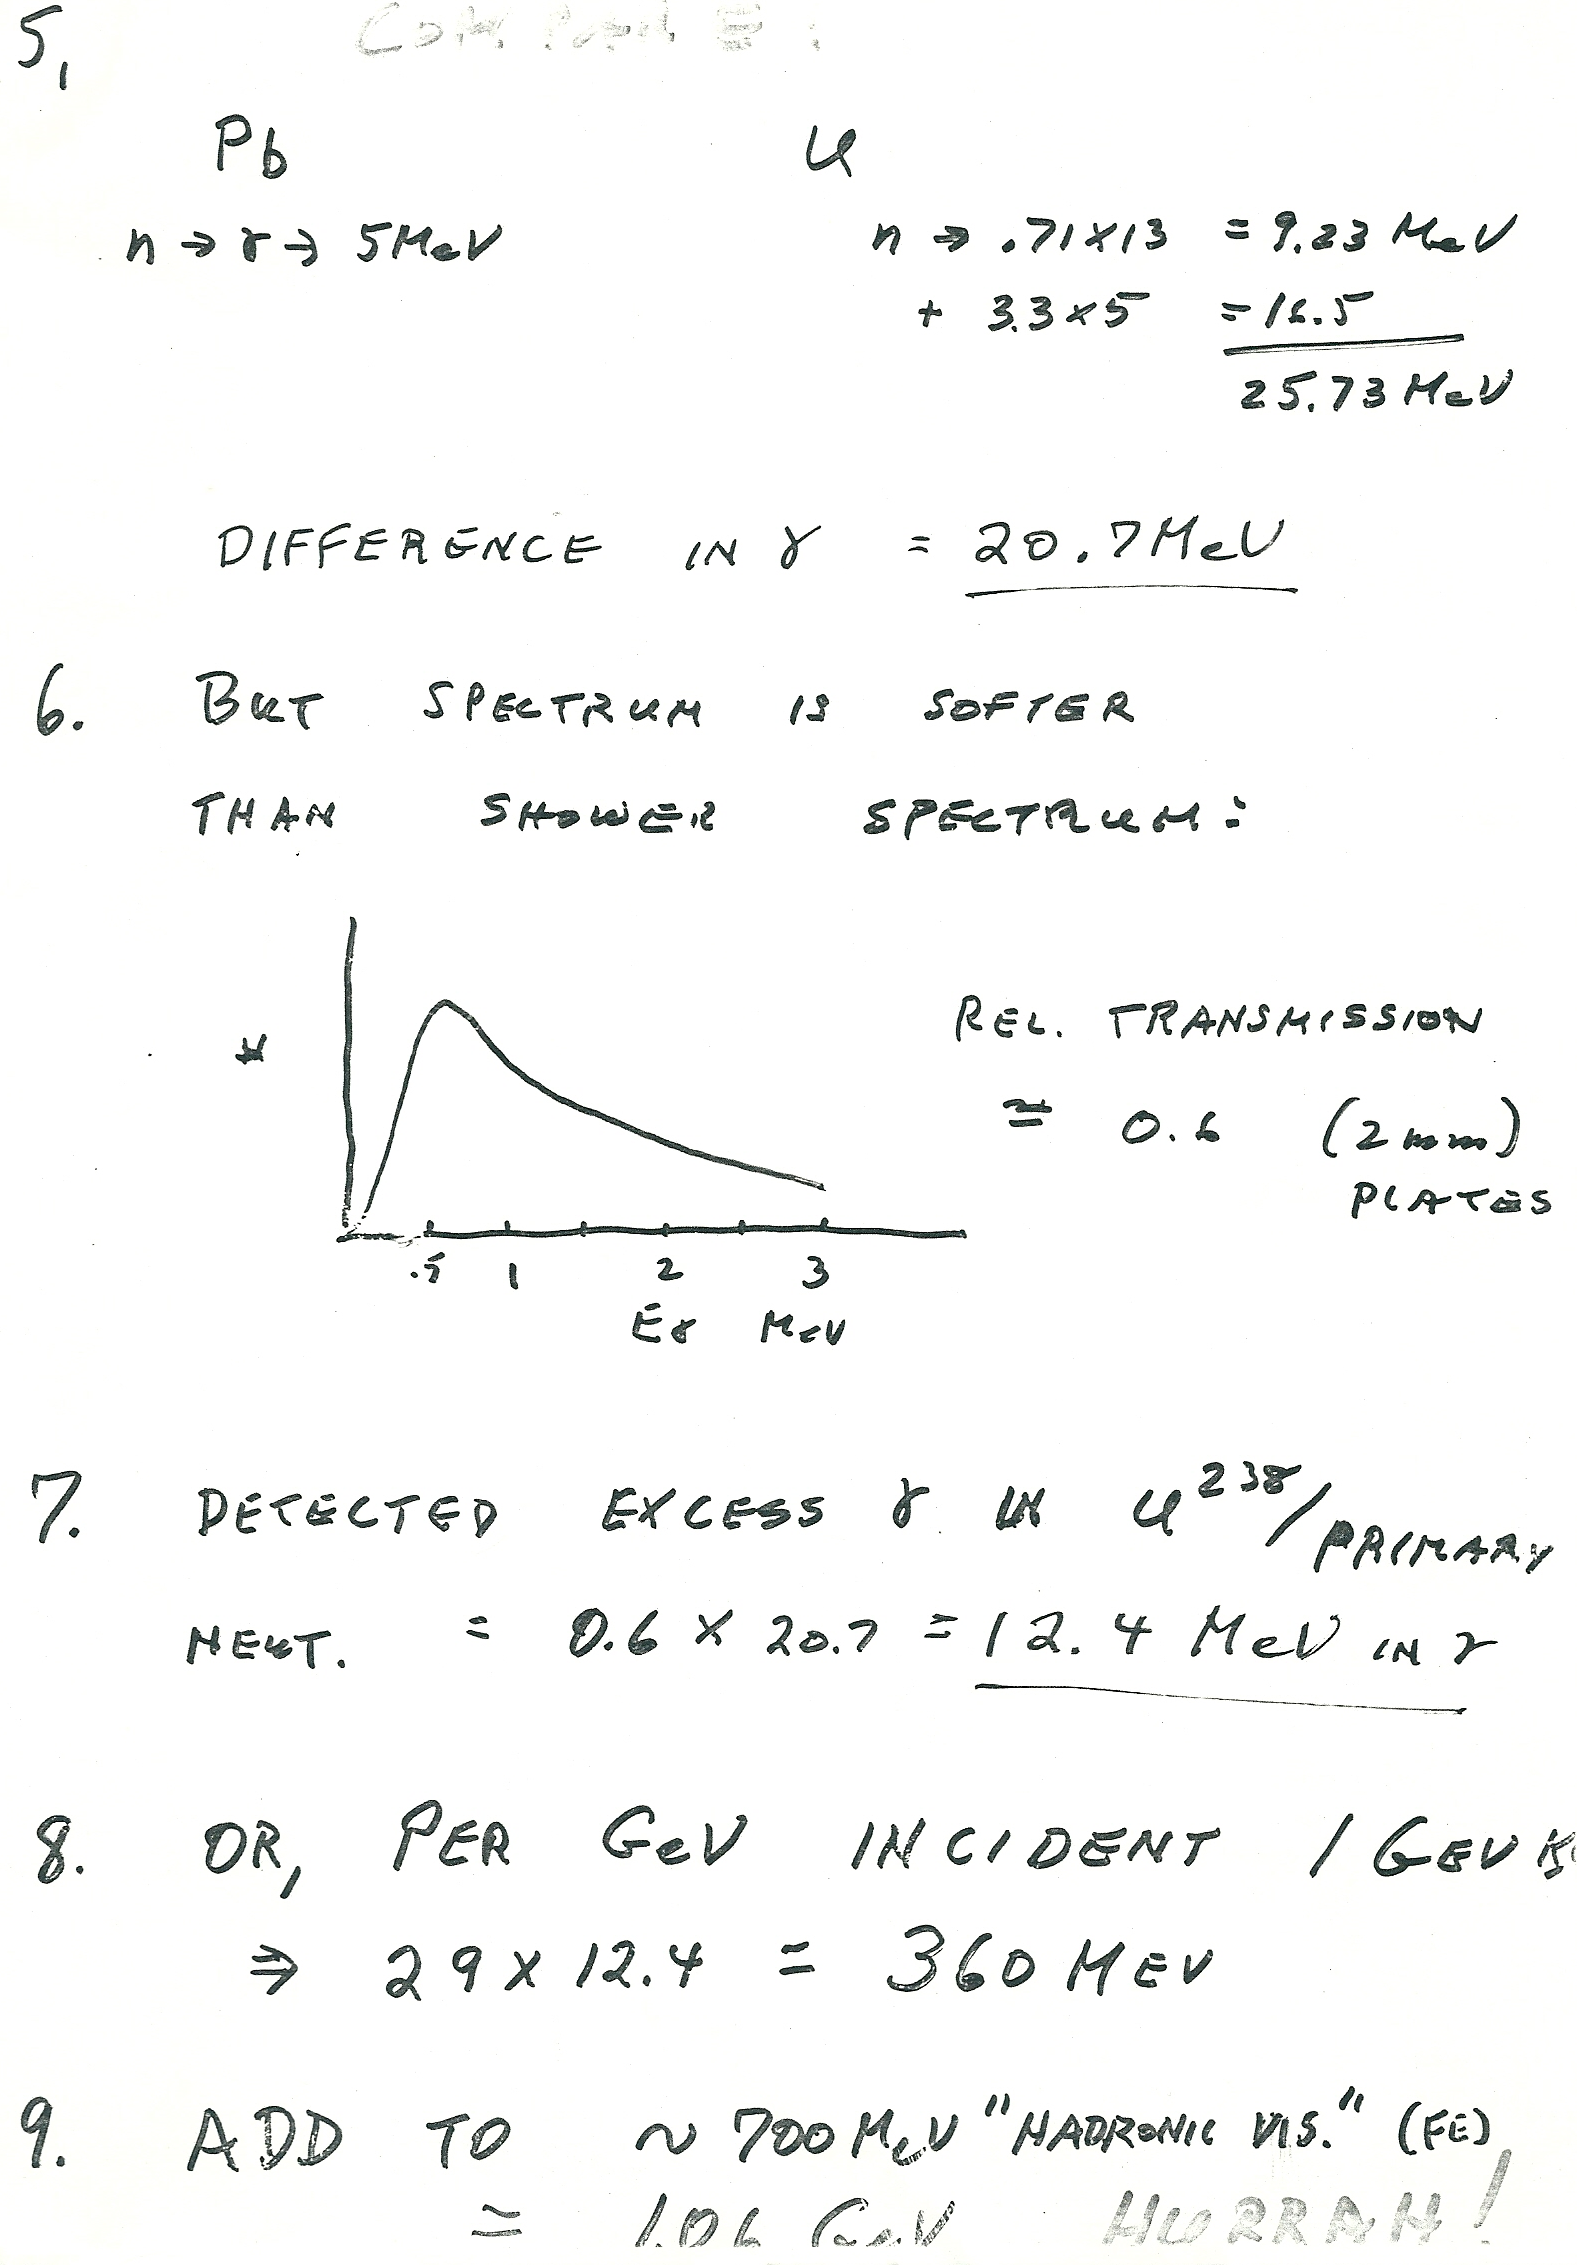 5,
Pb U
n → γ → 5 MeV n → .71×13 = 9.23 MeV
+ 3.3×5 = 16.5
25.73 MeV
DIFFERENCE IN γ = 20.7 MeV
6. BUT SPECTRUM IS SOFTER
THAN SHOWER SPECTRUM:
REL. TRANSMISSION
≃ 0.6 (2 mm)
PLATES
.5 1 2 3
Eγ MeV
7. DETECTED EXCESS γ IN U²³⁸/PRIMARY
NEUT. = 0.6 × 20.7 = 12.4 MeV IN γ
8. OR, PER GeV INCIDENT / GEV
⇒ 29 × 12.4 = 360 MEV
9. ADD TO ~ 700 MeV "HADRONIC VIS." (FE)
= 1.06 GeV HURRAH!